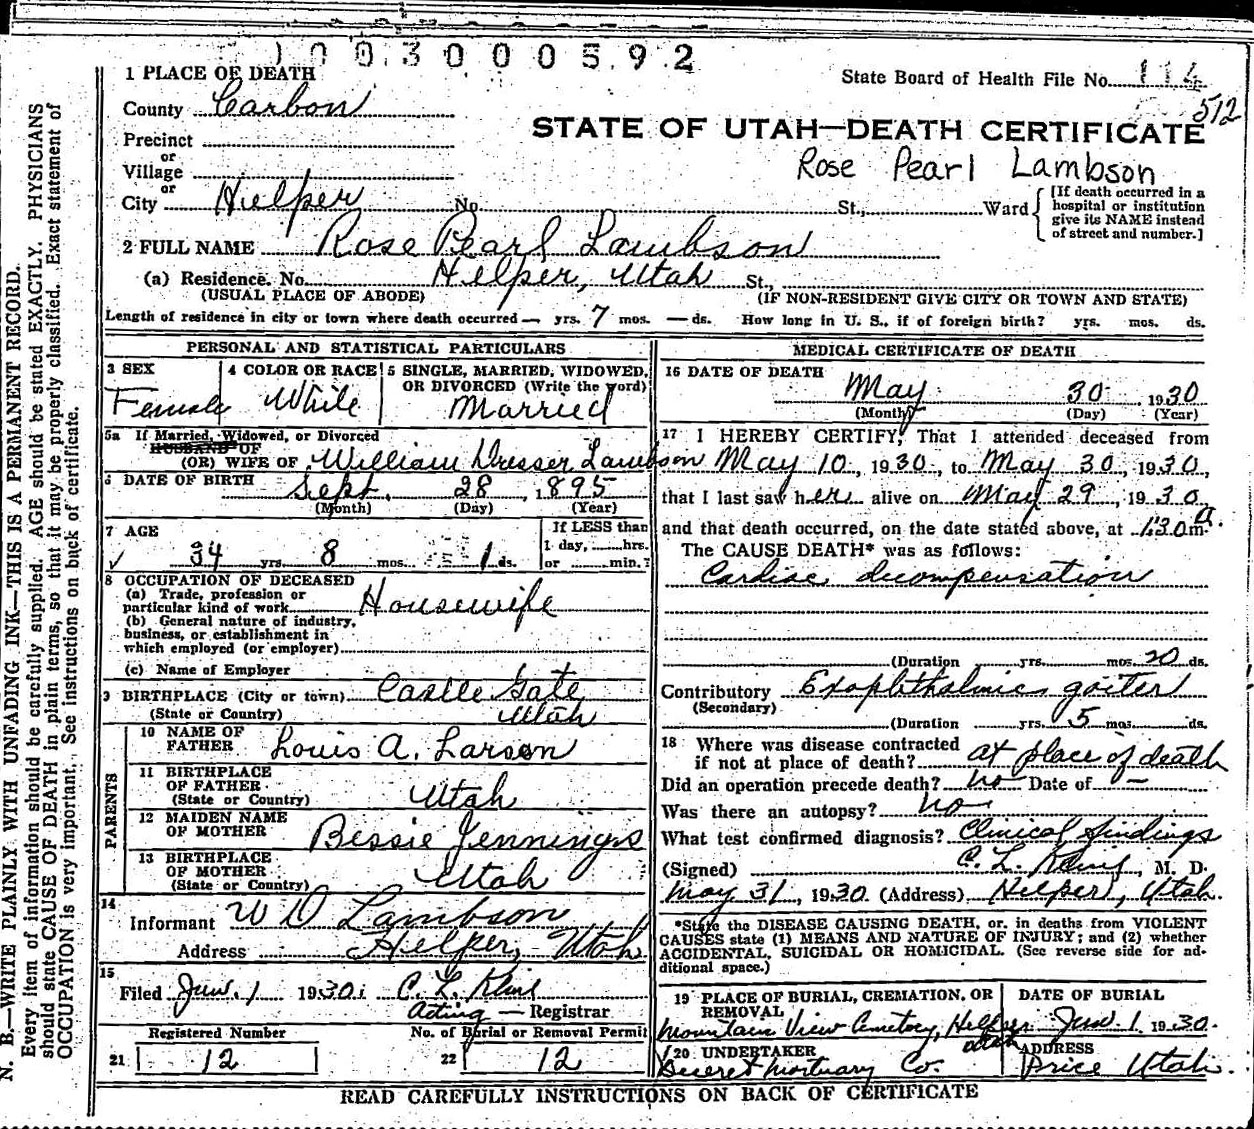 1003000592
State Board of Health File No. 114
512
1 PLACE OF DEATH
County Carbon
STATE OF UTAH—DEATH CERTIFICATE
Precinct
or
Rose Pearl Lambson
Village
or
City Helper No. St., Ward
[If death occurred in a
hospital or institution
give its NAME instead
of street and number.]
2 FULL NAME Rose Pearl Lambson
(a) Residence. No. Helper, Utah St.,
(USUAL PLACE OF ABODE) (IF NON-RESIDENT GIVE CITY OR TOWN AND STATE)
Length of residence in city or town where death occurred — yrs. 7 mos. — ds. How long in U. S., if of foreign birth? yrs. mos. ds.
PERSONAL AND STATISTICAL PARTICULARS
3 SEX
Female
4 COLOR OR RACE
White
5 SINGLE, MARRIED, WIDOWED,
OR DIVORCED (Write the word)
Married
5a If Married, Widowed, or Divorced
HUSBAND OF
(OR) WIFE OF William Dresser Lambson
6 DATE OF BIRTH Sept. 28, 1895
(Month) (Day) (Year)
7 AGE
34 yrs. 8 mos. 1 ds.
If LESS than
1 day, hrs.
or min.?
8 OCCUPATION OF DECEASED
(a) Trade, profession or
particular kind of work Housewife
(b) General nature of industry,
business, or establishment in
which employed (or employer)
(c) Name of Employer
9 BIRTHPLACE (City or town) Castle Gate
(State or Country) Utah
PARENTS
10 NAME OF
FATHER Louis A. Larsen
11 BIRTHPLACE
OF FATHER
(State or Country) Utah
12 MAIDEN NAME
OF MOTHER Bessie Jennings
13 BIRTHPLACE
OF MOTHER
(State or Country) Utah
14
Informant W D Lambson
Address Helper, Utah
15
Filed Jun. 1 1930; C. L.
Acting — Registrar
Registered Number No. of Burial or Removal Permit
21 12 22 12
MEDICAL CERTIFICATE OF DEATH
16 DATE OF DEATH
May 30, 1930
(Month) (Day) (Year)
17 I HEREBY CERTIFY, That I attended deceased from
May 10, 1930, to May 30, 1930,
that I last saw her alive on May 29, 1930,
and that death occurred, on the date stated above, at 1:30 a m.
The CAUSE DEATH* was as follows:
Cardiac decompensation
(Duration yrs. mos. 20 ds.
Contributory Exophthalmic goiter
(Secondary)
(Duration yrs. 5 mos. ds.
18 Where was disease contracted
if not at place of death? at place of death
Did an operation precede death? no Date of —
Was there an autopsy? no
What test confirmed diagnosis? Clinical findings
(Signed) C. L. , M. D.
May 31, 1930 (Address) Helper, Utah.
*State the DISEASE CAUSING DEATH, or, in deaths from VIOLENT
CAUSES state (1) MEANS AND NATURE OF INJURY; and (2) whether
ACCIDENTAL, SUICIDAL OR HOMICIDAL. (See reverse side for ad-
ditional space.)
19 PLACE OF BURIAL, CREMATION, OR
REMOVAL
Mountain View Cemetery, Helper
Utah
DATE OF BURIAL
Jun 1 1930.
20 UNDERTAKER
Deseret Mortuary Co.
ADDRESS
Price Utah.
READ CAREFULLY INSTRUCTIONS ON BACK OF CERTIFICATE
N. B.—WRITE PLAINLY WITH UNFADING INK—THIS IS A PERMANENT RECORD.
Every item of information should be carefully supplied. AGE should be stated EXACTLY. PHYSICIANS
should state CAUSE OF DEATH in plain terms, so that it may be properly classified. Exact statement of
OCCUPATION is very important. See instructions on back of certificate.